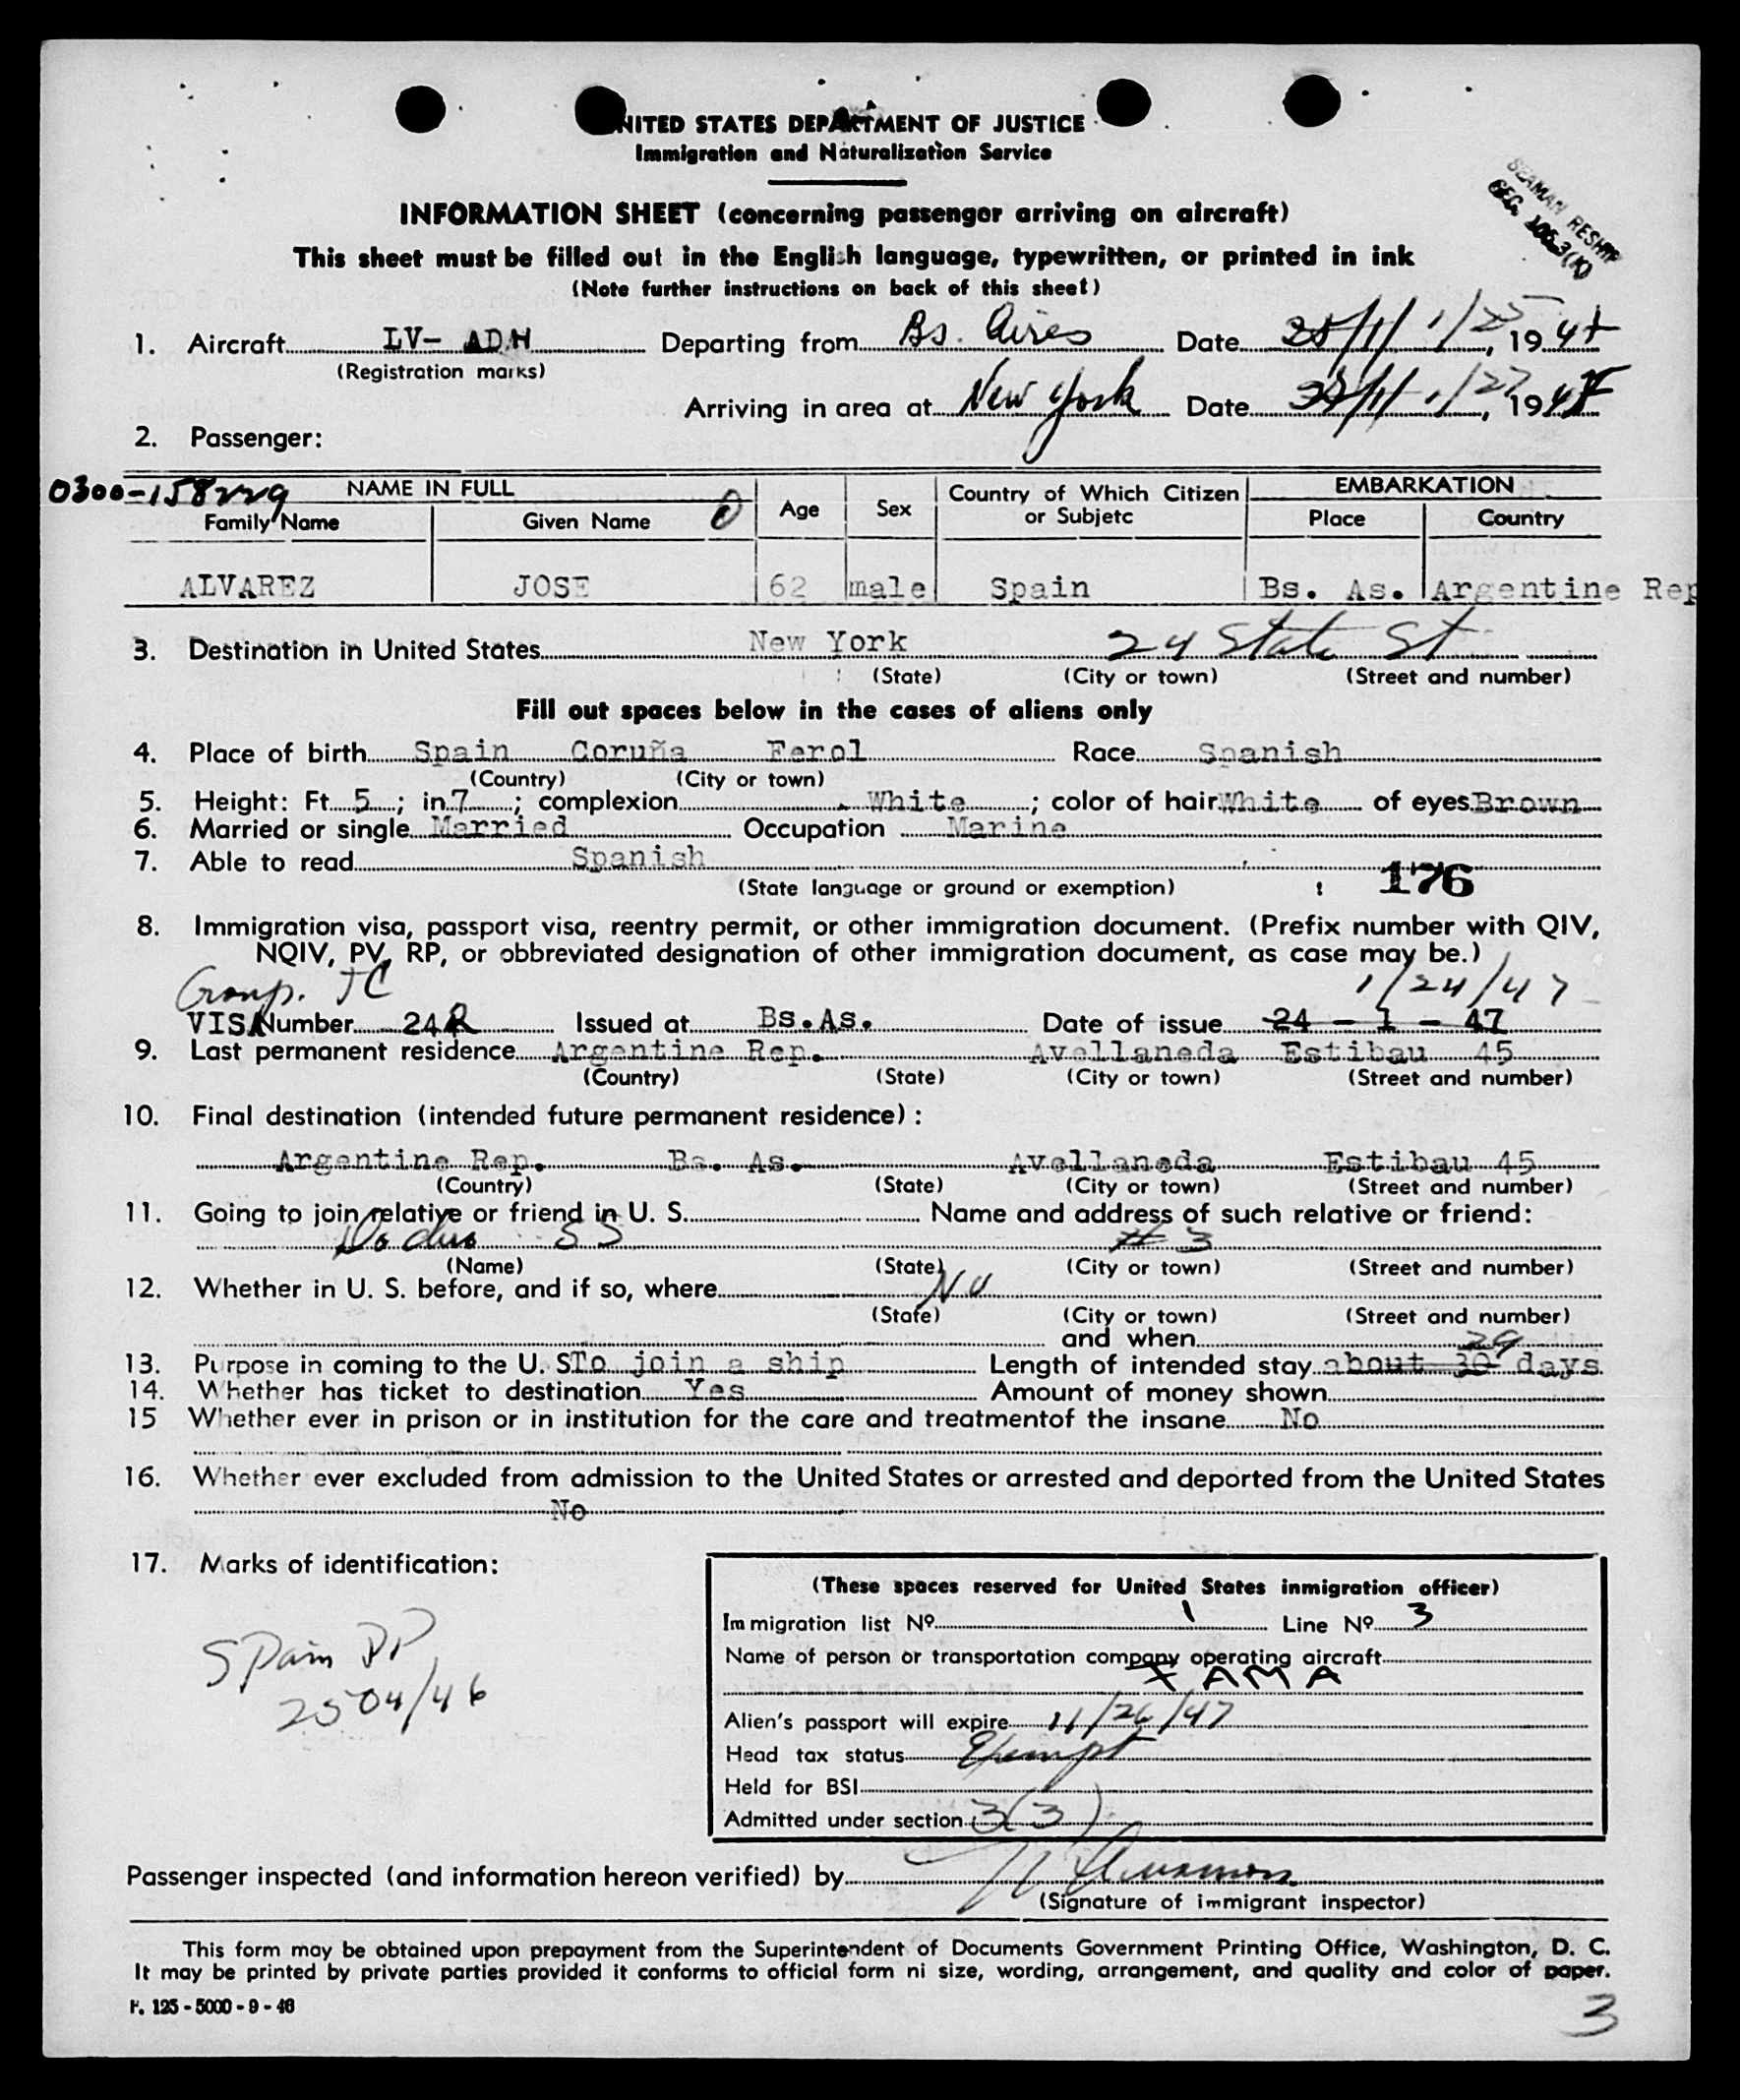 UNITED STATES DEPARTMENT OF JUSTICE
Immigration and Naturalization Service
SEAMAN RESHIP
SEC. 105-3(K)
INFORMATION SHEET (concerning passenger arriving on aircraft)
This sheet must be filled out in the English language, typewritten, or printed in ink
(Note further instructions on back of this sheet)
1. Aircraft LV- ADH Departing from Bs. Aires Date 25/1/ 1/25, 1947
(Registration marks)
Arriving in area at New York Date 1/27, 1947
2. Passenger:
0300-158229 NAME IN FULL Age Sex Country of Which Citizen EMBARKATION
Family Name Given Name or Subjetc Place Country
ALVAREZ JOSE 62 male Spain Bs. As. Argentine Rep
3. Destination in United States New York 24 State St
(State) (City or town) (Street and number)
Fill out spaces below in the cases of aliens only
4. Place of birth Spain Coruña Ferol Race Spanish
(Country) (City or town)
5. Height: Ft 5; in 7; complexion White; color of hair White of eyes Brown
6. Married or single Married Occupation Marine
7. Able to read Spanish
(State language or ground or exemption) 176
8. Immigration visa, passport visa, reentry permit, or other immigration document. (Prefix number with QIV,
NQIV, PV, RP, or obbreviated designation of other immigration document, as case may be.)
1/24/47
VISA Number 24R Issued at Bs.As. Date of issue 24 - 1 - 47
9. Last permanent residence Argentine Rep. Avellaneda Estibau 45
(Country) (State) (City or town) (Street and number)
10. Final destination (intended future permanent residence) :
Argentine Rep. Bs. As. Avellaneda Estibau 45
(Country) (State) (City or town) (Street and number)
11. Going to join relative or friend in U. S. Name and address of such relative or friend:
SS # 3
(Name) (State) (City or town) (Street and number)
12. Whether in U. S. before, and if so, where No
(State) (City or town) (Street and number)
and when 29
13. Purpose in coming to the U. S To join a ship Length of intended stay about 30 days
14. Whether has ticket to destination Yes Amount of money shown
15 Whether ever in prison or in institution for the care and treatmentof the insane No
16. Whether ever excluded from admission to the United States or arrested and deported from the United States
No
17. Marks of identification:
Spain PP
2504/46
(These spaces reserved for United States inmigration officer)
Immigration list Nº 1 Line Nº 3
Name of person or transportation company operating aircraft
X AMA
Alien's passport will expire 11/26/47
Head tax status Exempt
Held for BSI
Admitted under section 3(3)
Passenger inspected (and information hereon verified) by
(Signature of immigrant inspector)
This form may be obtained upon prepayment from the Superintendent of Documents Government Printing Office, Washington, D. C.
It may be printed by private parties provided it conforms to official form ni size, wording, arrangement, and quality and color of paper.
F. 125 - 5000 - 9 - 46
3